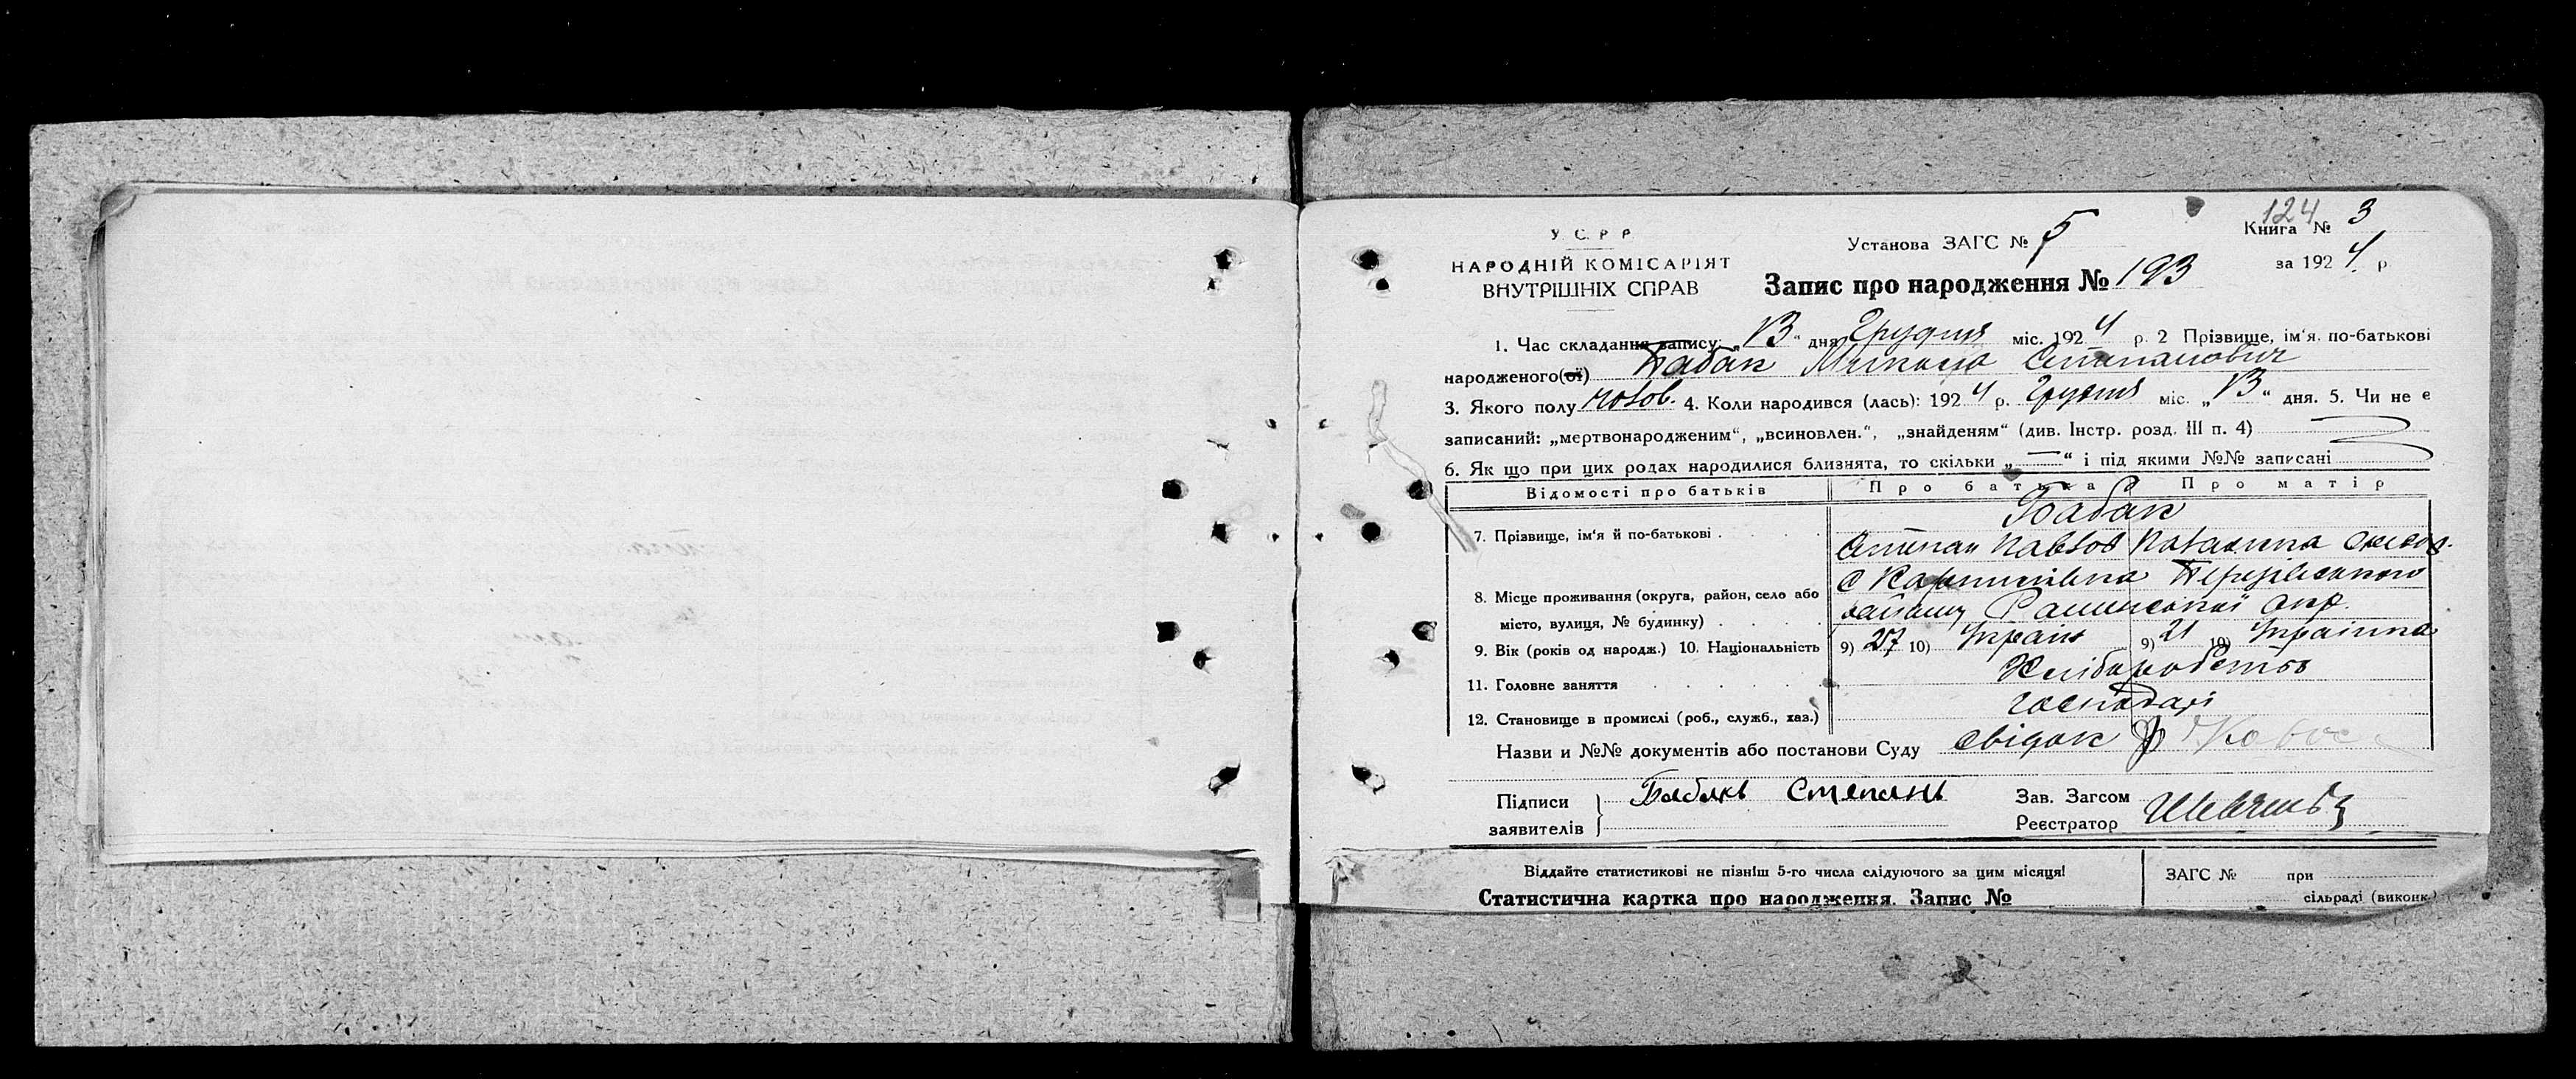 124
У. С. Р. Р.
НАРОДНІЙ КОМІСАРІЯТ
ВНУТРІШНІХ СПРАВ
Установа ЗАГС № 5
Книга № 3
за 1924 р.
Запис про народження № 193
1. Час складання запису: „13“ дня Грудня міс. 1924 р. 2 Прізвище, ім‘я. по-батькові
народженого(ої) Бабак Микола Степанович
3. Якого полу чолов. 4. Коли народився (лась): 1924 р. Грудня міс. „13“ дня. 5. Чи не є
записаний: „мертвонародженим“, „всиновлен.“, „знайденям“ (див. Інстр. розд. III п. 4)
6. Як що при цих родах народилися близнята, то скільки „—“ і під якими №№ записані
Відомості про батьків Про батька Про матір
Бабак
7. Прізвище, ім‘я й по-батькові Степан Павлов
8. Місце проживання (округа, район, село або
місто, вулиця, № будинку) району Роменської окр.
9. Вік (років од народж.) 10. Національність 9) 27 10) Україн 9) 21 10) Українка
11. Головне заняття Хліборобство
12. Становище в промислі (роб., служб., хаз.) господарі
Назви и №№ документів або постанови Суду свідок
Підписи
заявителів
Бабакъ Степанъ
Зав. Загсом
Реєстратор
Віддайте статистикові не пізніш 5-го числа слідуючого за цим місяця!
Статистична картка про народження. Запис №
ЗАГС № при
сільраді (виконк.)